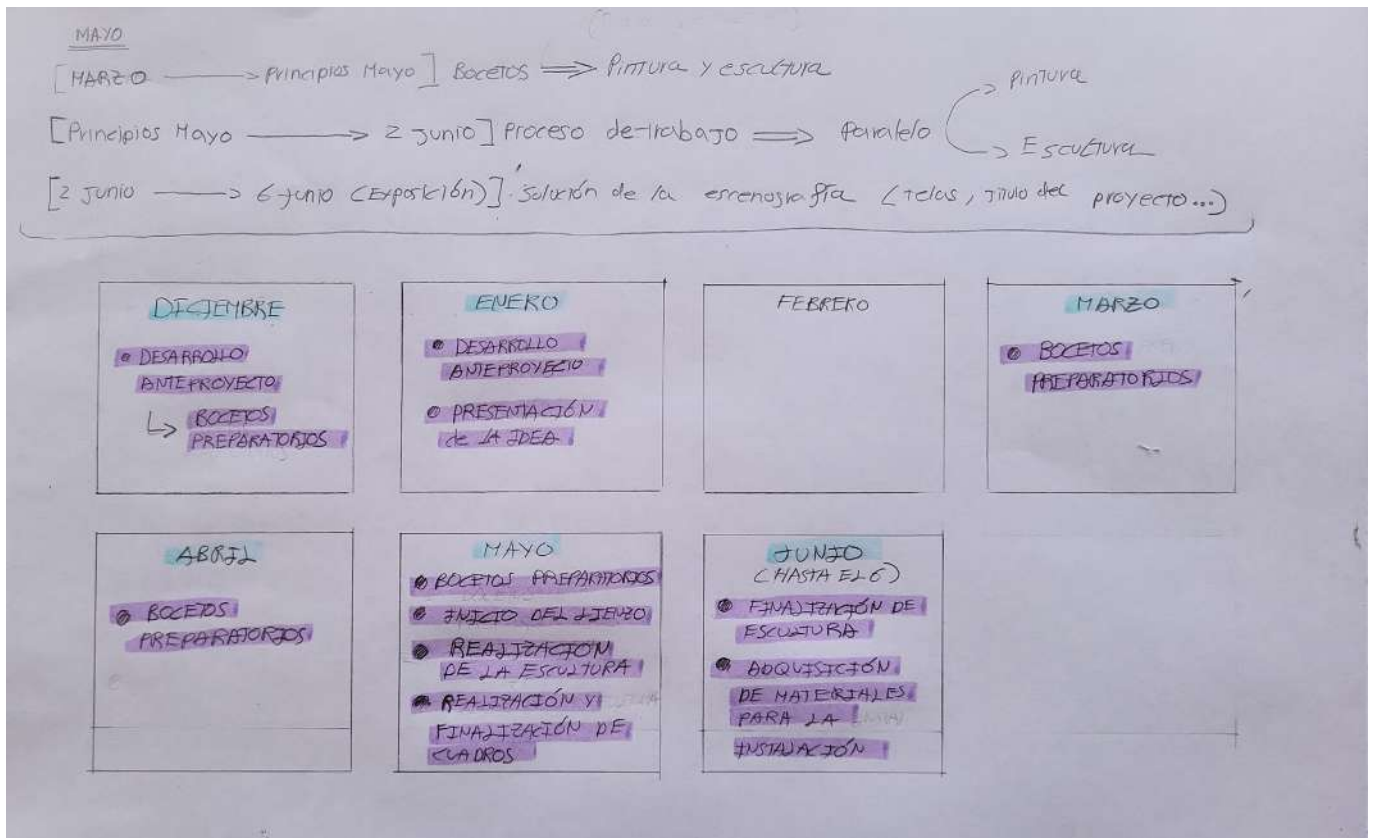 MAYO
[MARZO → Principios Mayo] Bocetos ⇒ Pintura y escultura
[Principios Mayo → 2 junio] Proceso de trabajo ⇒ Paralelo → Pintura
→ Escultura
[2 junio → 6 junio (Exposición)]. Solución de la escenografía (Telas, Título del proyecto...)
DICIEMBRE
• DESARROLLO
ANTEPROYECTO
↳ BOCETOS
PREPARATORIOS
ENERO
• DESARROLLO
ANTEPROYECTO
• PRESENTACIÓN
de LA IDEA
FEBRERO
MARZO
• BOCETOS
PREPARATORIOS
ABRIL
• BOCETOS
PREPARATORIOS
MAYO
• BOCETOS PREPARATORIOS
• INICIO DEL LIENZO
• REALIZACIÓN
DE LA ESCULTURA
• REALIZACIÓN Y
FINALIZACIÓN DE
CUADROS
JUNIO
(HASTA EL 6)
• FINALIZACIÓN DE
ESCULTURA
• ADQUISICIÓN
DE MATERIALES
PARA LA
INSTALACIÓN